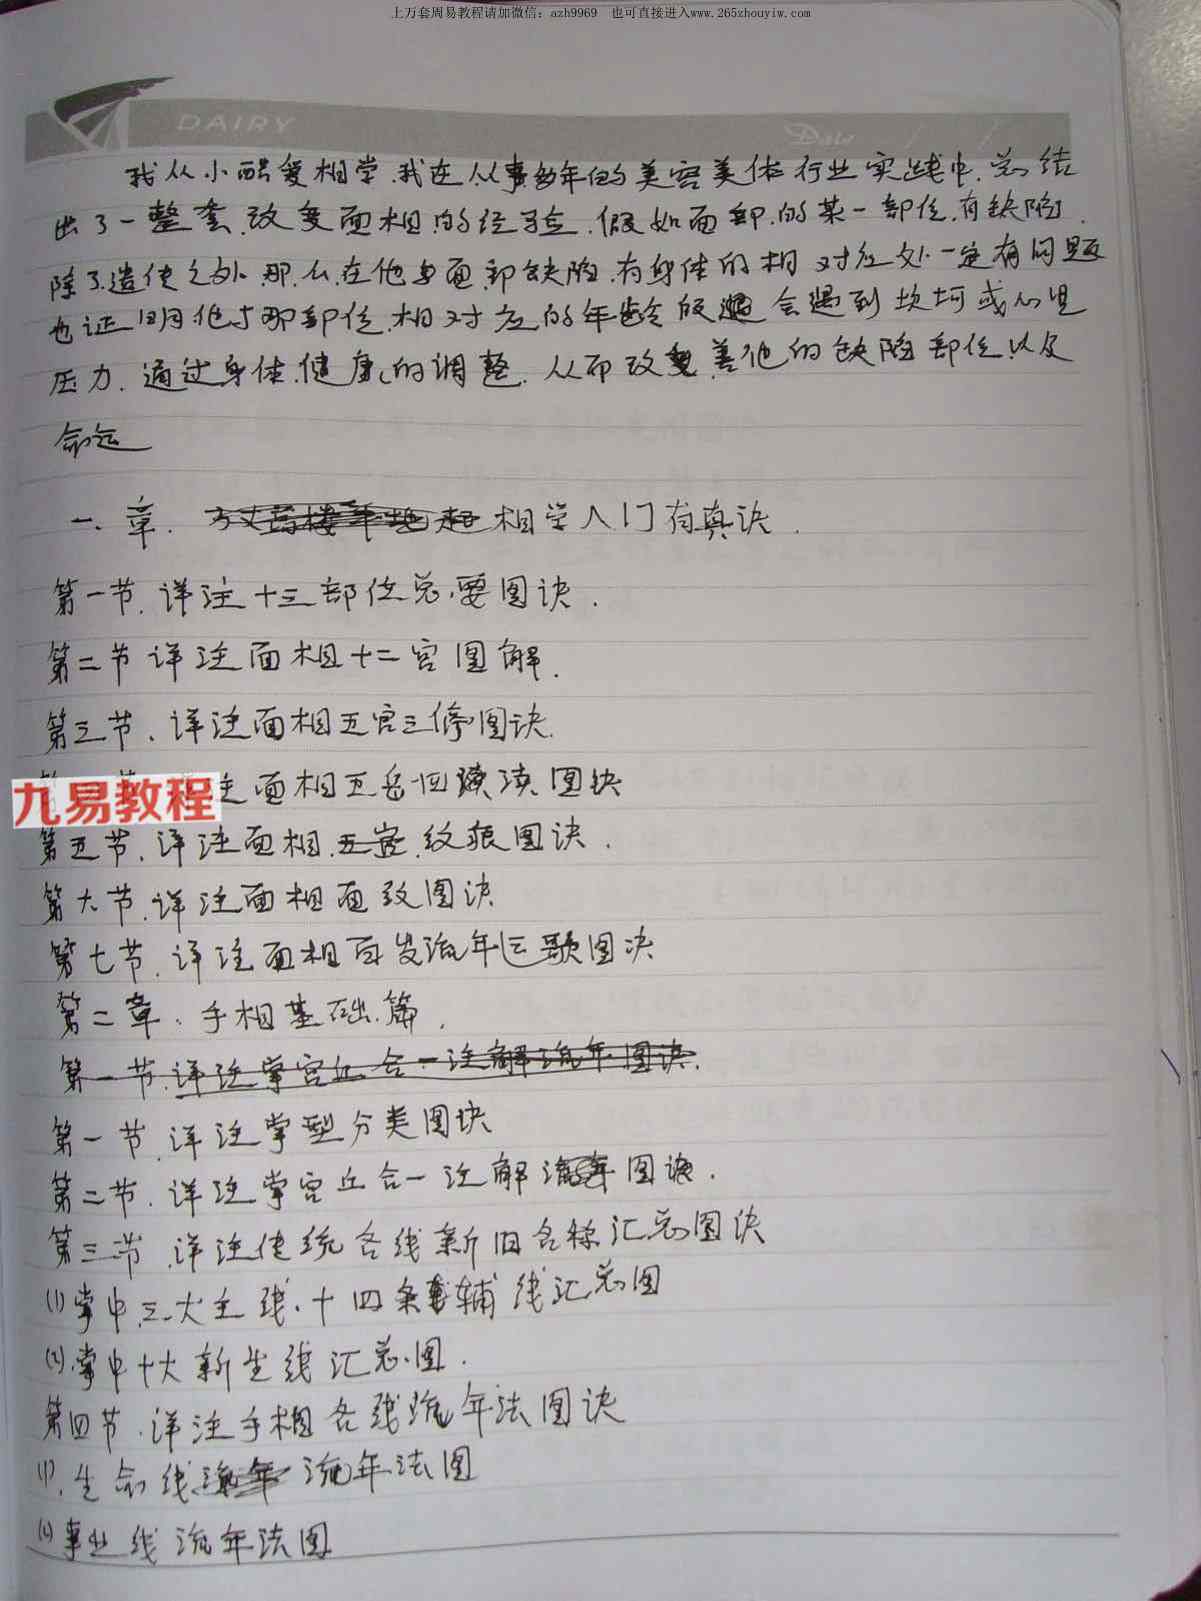 上万套周易教程请加微信：azh9969　也可直接进入www.265zhouyiw.com
DAIRY
Date
我从小酷爱相学.我在从事多年的美容美体行业实践中.总结
出了一整套.改变面相的经验.假如面部.的某一部位.有缺陷.
除了遗传之外.那么在他面部缺陷.有身体的相对应处一定有问题
也证明他那部位.相对应的年龄段会遇到坎坷或心里
压力.通过身体.健康的调整.从而改善他的缺陷部位以及
命运
一.章.相学入门有真诀.
第一节.详注十三部位总.要图诀.
第二节详注面相十二宫图解.
第三节.详注面相五官三停图诀.
九易教程
注面相五岳四渎图诀
第五节.详注面相.纹痕图诀.
第六节.详注面相面纹图诀
第七节.详注面相百岁流年运歌图决
第二章.手相基础.篇.
第一节.详注掌宫丘合一注解流年图诀.
第一节.详注掌型分类图诀
第二节.详注掌宫丘合一注解图诀.
第三节.详注传统各线新旧名称汇总图诀
(1)掌中三大主线.十四条辅线汇总图
(2).掌中十大新生线汇总.图.
第四节.详注手相各线流年法图诀
(1).生命线流年法图
(2)事业线流年法图